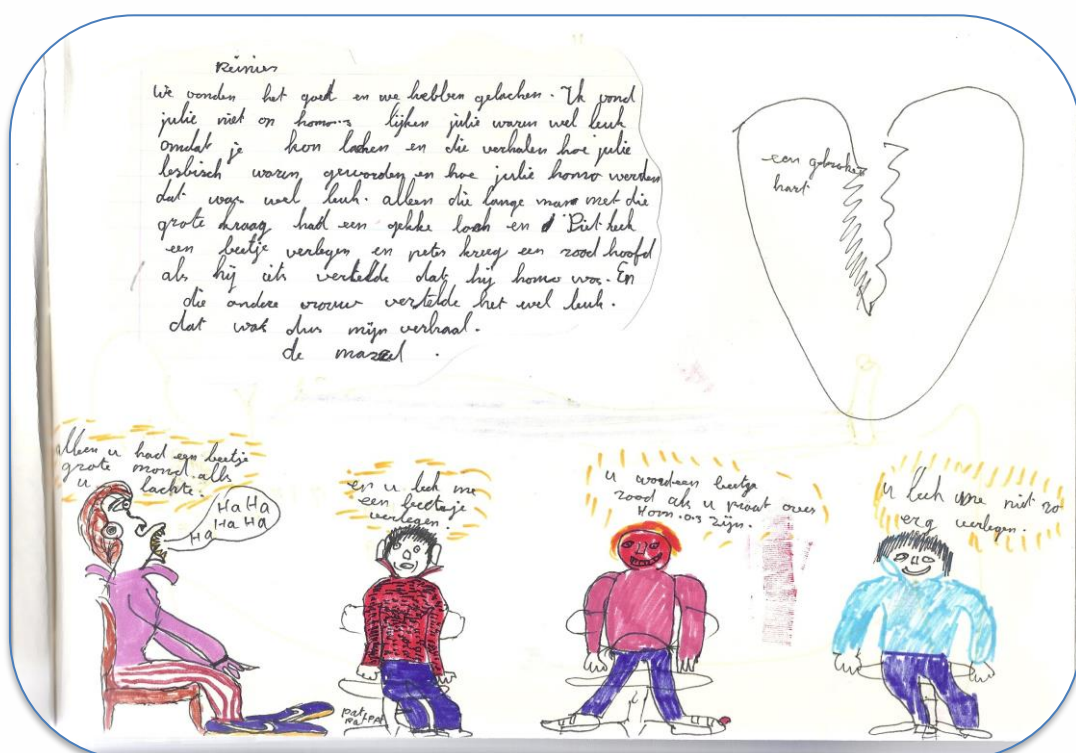 Reinier
We vonden het goed en we hebben gelachen. Ik vond
julie niet op homo's lijken julie waren wel leuk
omdat je kon lachen en die verhalen hoe julie
lesbisch waren geworden en hoe julie homo werden
dat was wel leuk. alleen die lange man met die
grote kraag had een gekke lach en Piet keek
een beetje verlegen en peter kreeg een rood hoofd
als hij iets vertelde dat hij homo was. En
die andere vrouw vertelde het wel leuk.
dat wak dus mijn verhaal.
de mazzel.
een gebroken
hart
alleen u had een beetje
grote mond alls
u lachte.
Ha Ha
Ha Ha
Ha
en u leek me
een beetje
verlegen.
u word een beetje
rood als u praat over
Hom.o.s zijn.
u leek me niet zo
erg verlegen.
pat
pat pat